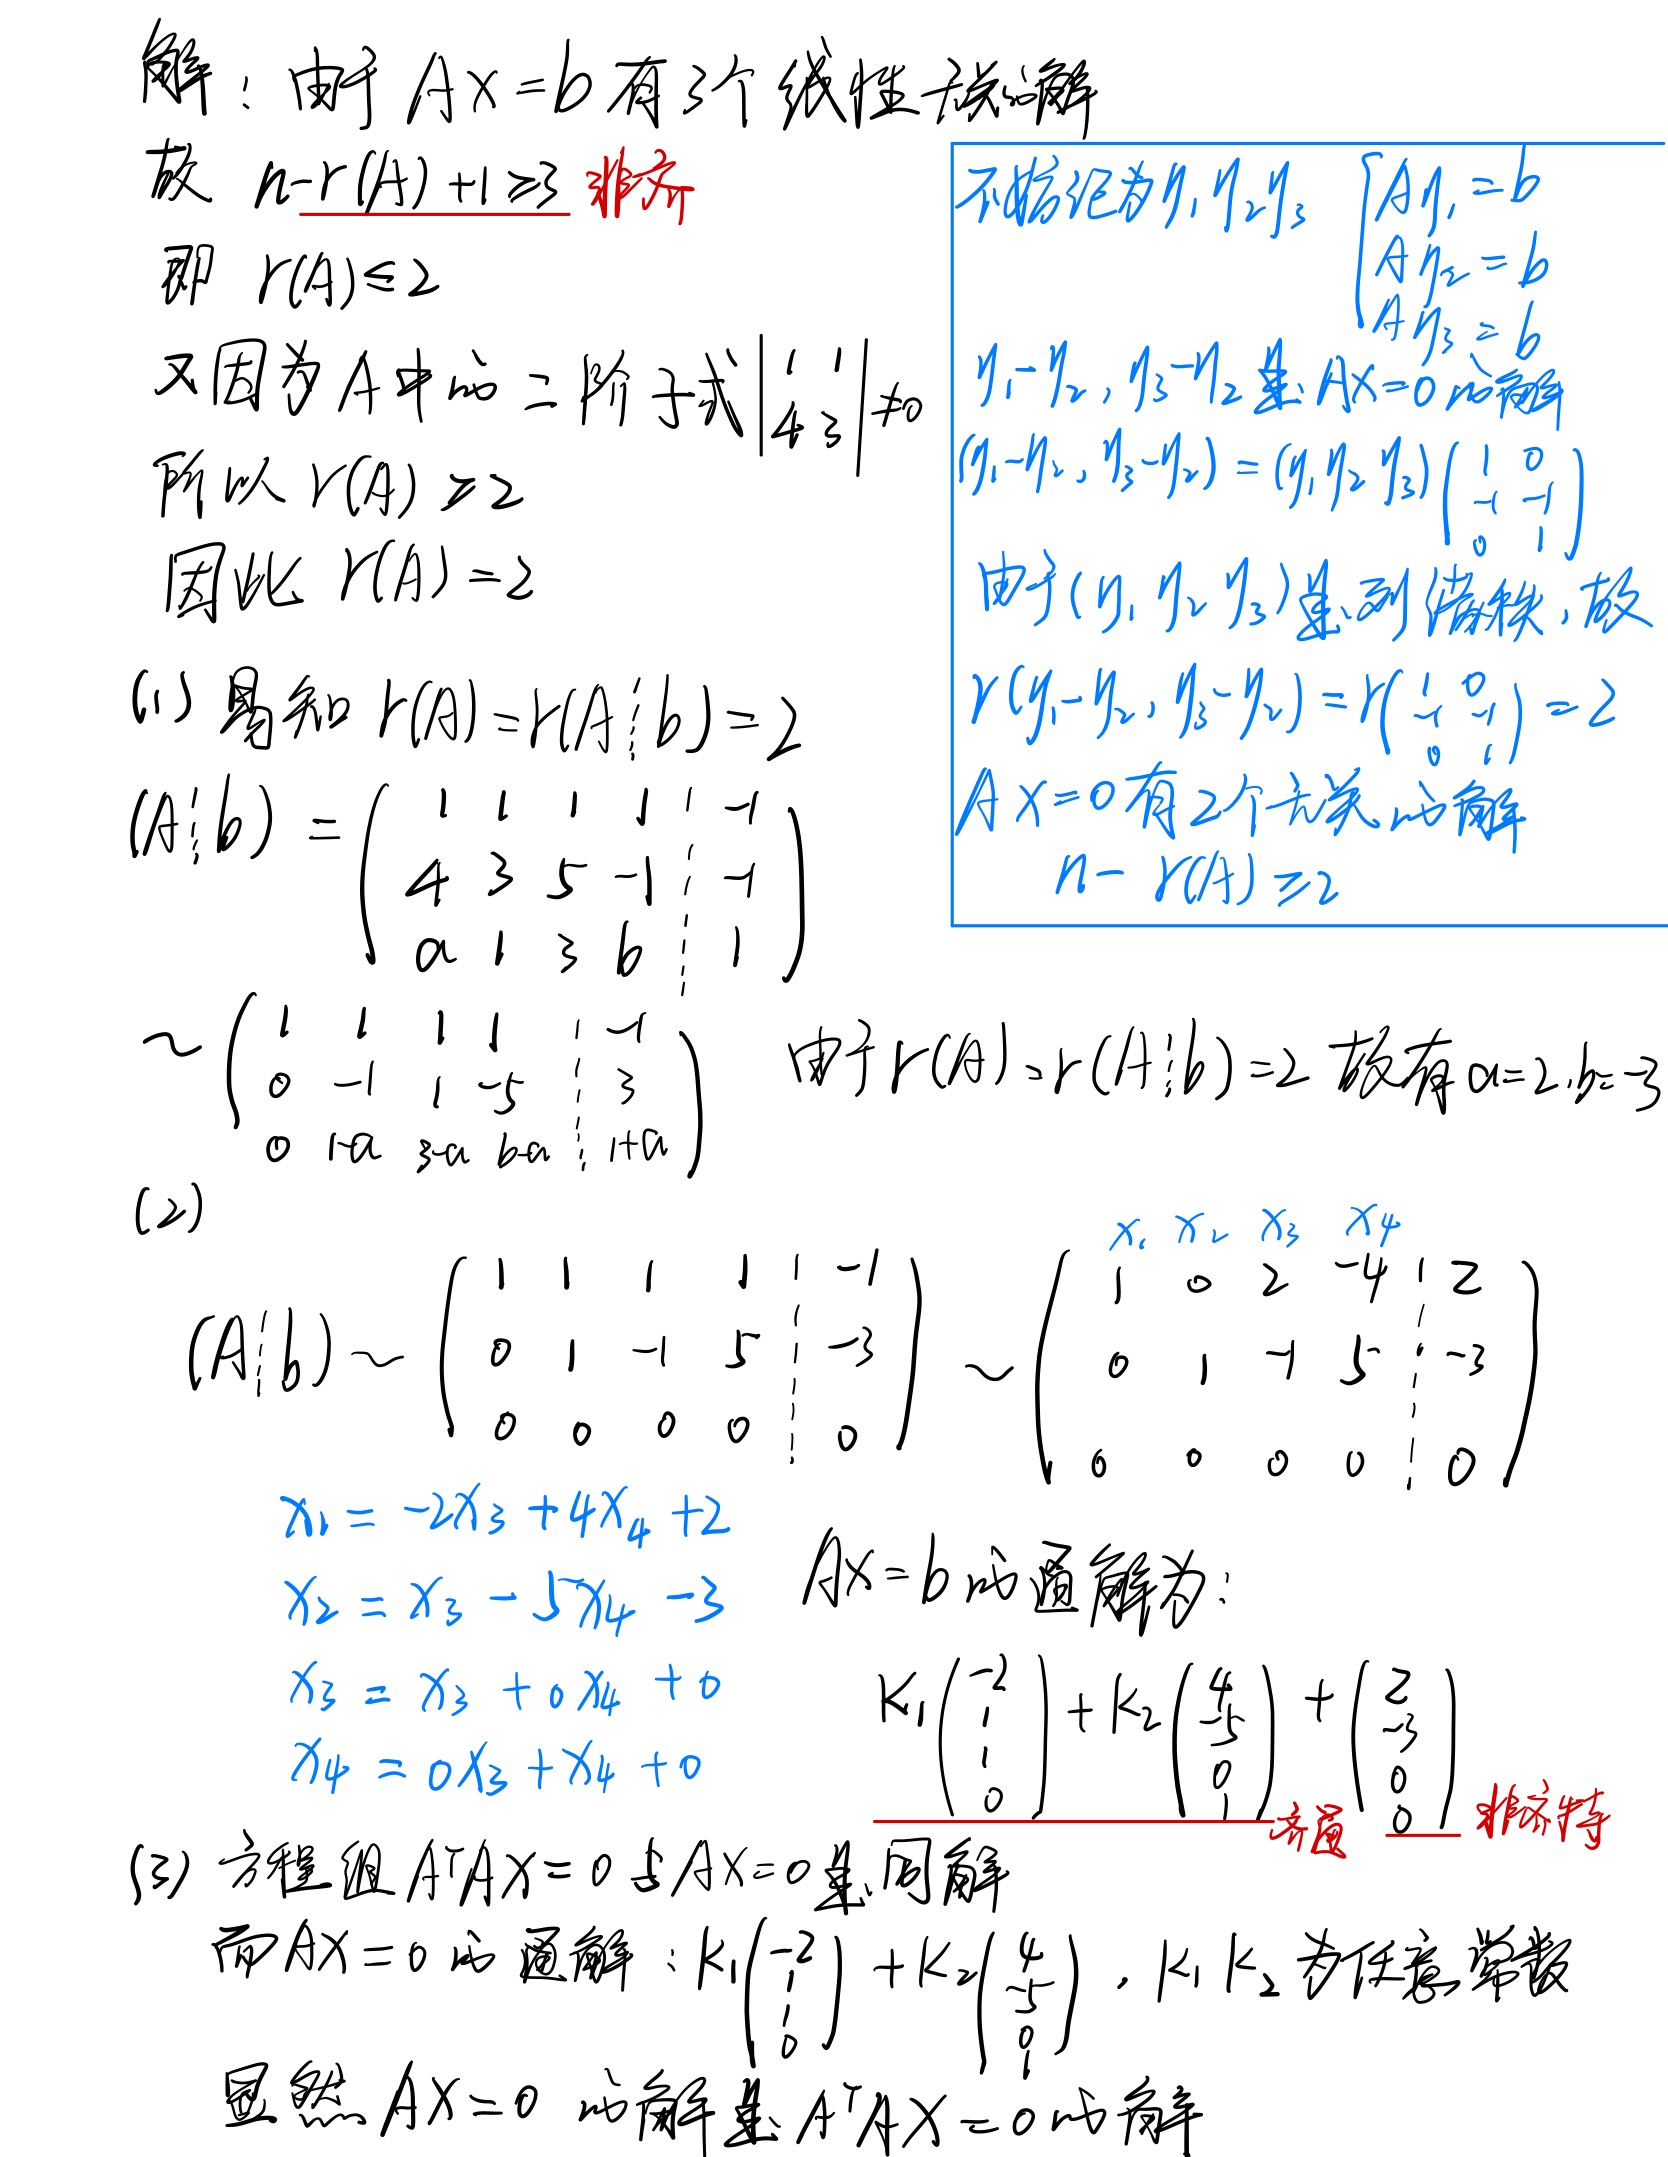 解：由于 AX=b 有3个线性无关的解
故 n-r(A)+1≥3 非齐
即 r(A)≤2
又因为 A 中的二阶子式 |1 1; 4 3| ≠0
所以 r(A)≥2
因此 r(A)=2
不妨记为 η₁ η₂ η₃ { Aη₁=b
Aη₂=b
Aη₃=b
η₁-η₂, η₃-η₂ 是 AX=0 的解
(η₁-η₂, η₃-η₂) = (η₁ η₂ η₃) (1 0; -1 -1; 0 1)
由于(η₁ η₂ η₃)是列满秩，故
r(η₁-η₂, η₃-η₂) = r(1 0; -1 -1; 0 1) = 2
AX=0 有2个无关的解
n-r(A)≥2
(1) 易知 r(A)=r(A¦b)=2
(A¦b) = (1 1 1 1 ¦ -1
4 3 5 -1 ¦ -1
a 1 3 b ¦ 1)
~ (1 1 1 1 ¦ -1
0 -1 1 -5 ¦ 3
0 1-a 3-a b-a ¦ 1+a)
由于 r(A)=r(A¦b)=2 故有 a=2, b=-3
(2)
(A¦b) ~ (1 1 1 1 ¦ -1
0 1 -1 5 ¦ -3
0 0 0 0 ¦ 0)
x₁ x₂ x₃ x₄
~ (1 0 2 -4 ¦ 2
0 1 -1 5 ¦ -3
0 0 0 0 ¦ 0)
x₁ = -2x₃ + 4x₄ + 2
x₂ = x₃ - 5x₄ - 3
x₃ = x₃ + 0x₄ + 0
x₄ = 0x₃ + x₄ + 0
AX=b 的通解为：
K₁(-2; 1; 1; 0) + K₂(4; -5; 0; 1) + (2; -3; 0; 0)
齐通 非齐特
(3) 方程组 AᵀAX=0 与 AX=0 是同解
而 AX=0 的通解：K₁(-2; 1; 1; 0) + K₂(4; -5; 0; 1)，K₁ K₂ 为任意常数
显然 AX=0 的解是 AᵀAX=0 的解